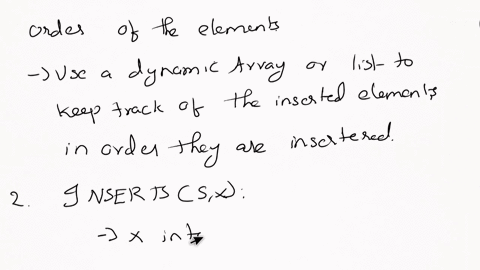 order of the elements
-> Use a dynamic Array or list to
keep track of the inserted elements
in order they are insertered.
2. INSERTS(S,x):
-> x int